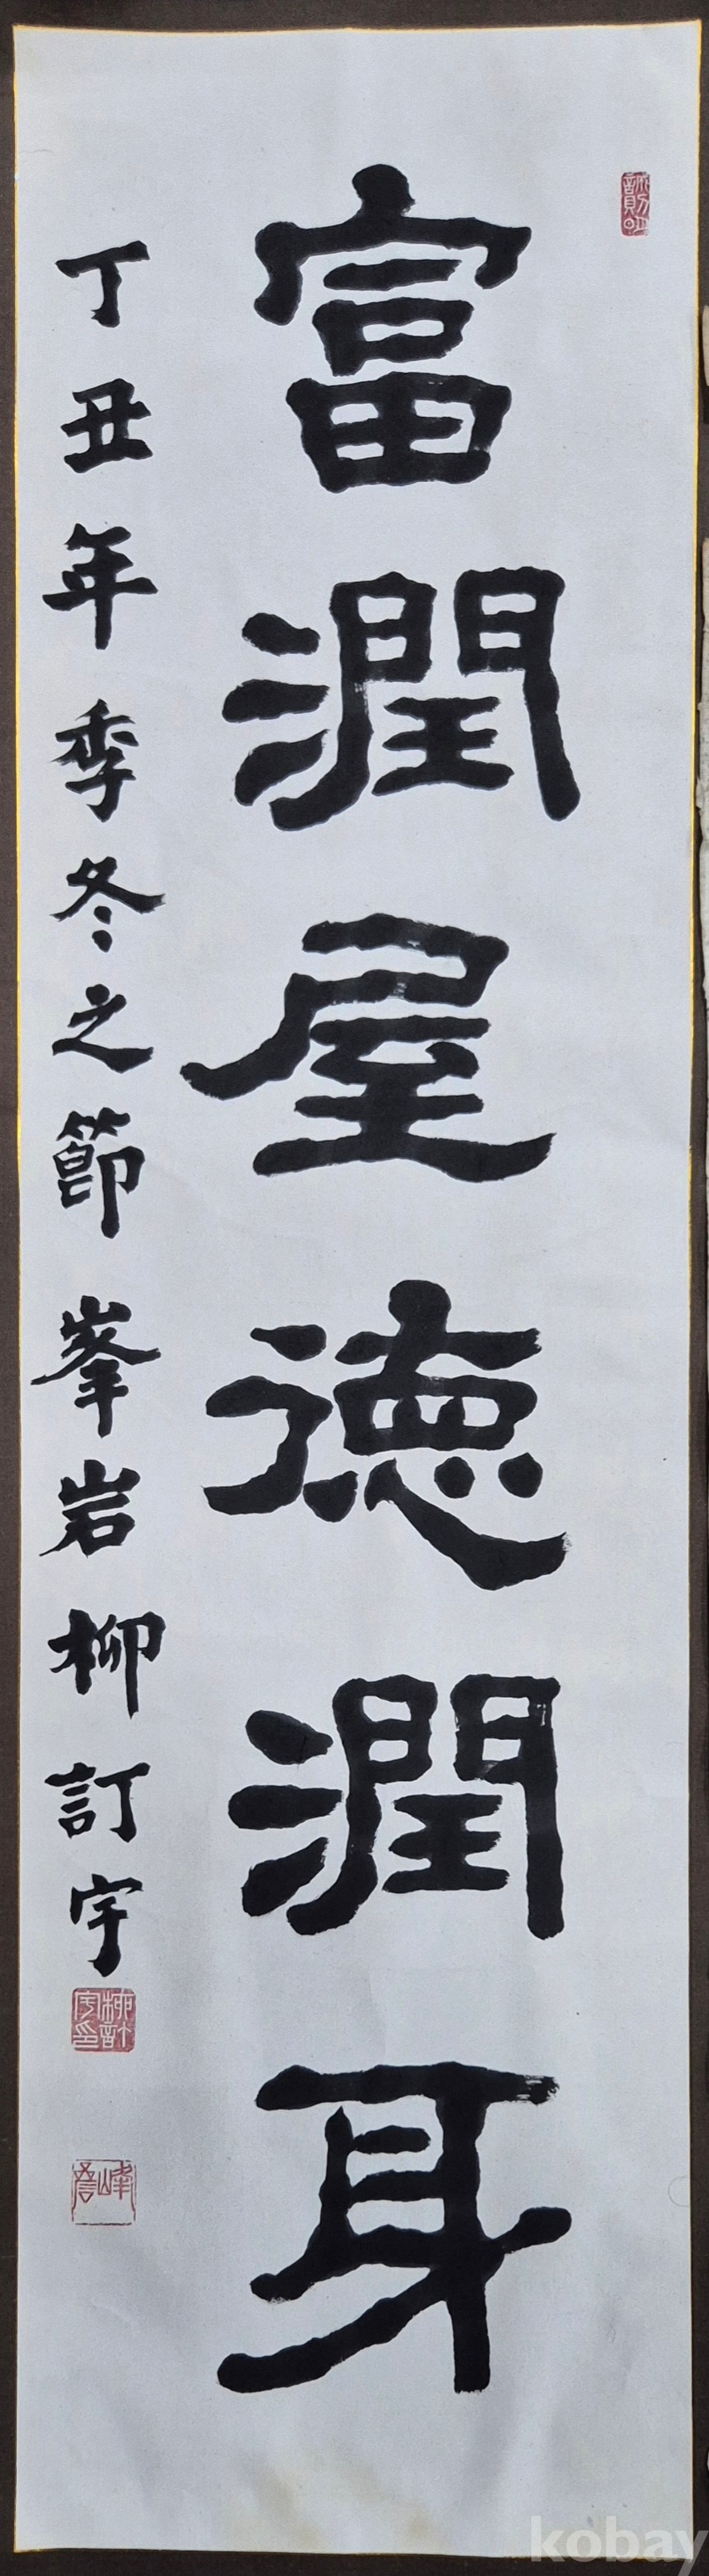 富潤屋德潤身
丁丑年季冬之節 峯岩 柳訂宇
柳訂宇印
kobay